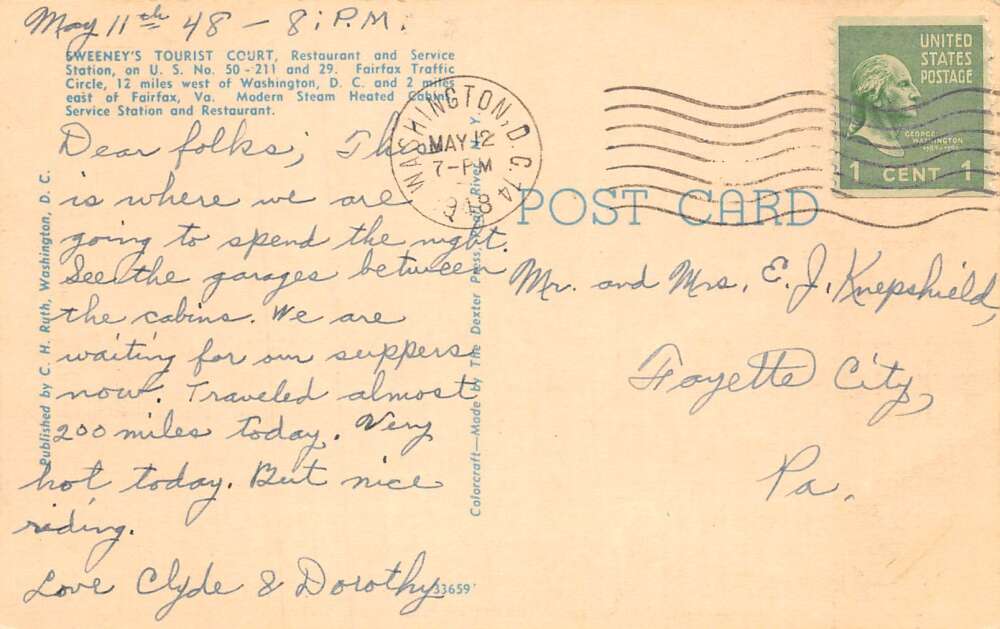 May 11th 48 - 8:P.M.
SWEENEY'S TOURIST COURT, Restaurant and Service
Station, on U. S. No. 50-211 and 29. Fairfax Traffic
Circle, 12 miles west of Washington, D. C. and 2 miles
east of Fairfax, Va. Modern Steam Heated Cabins
Service Station and Restaurant.
Dear folks; This
is where we are
going to spend the night.
See the garages between
the cabins. We are
waiting for our suppers
now. Traveled almost
200 miles today. Very
hot today. But nice
riding.
Love Clyde & Dorothy
Published by C. H. Ruth, Washington, D. C.
Colorcraft—Made by The Dexter Press, Pearl River, N. Y.
33659
WASHINGTON, D.C. 14
MAY 12
7-PM
1948
POST CARD
UNITED
STATES
POSTAGE
GEORGE
WASHINGTON
1 CENT 1
Mr. and Mrs. E. J. Knepshield,
Fayette City,
Pa.